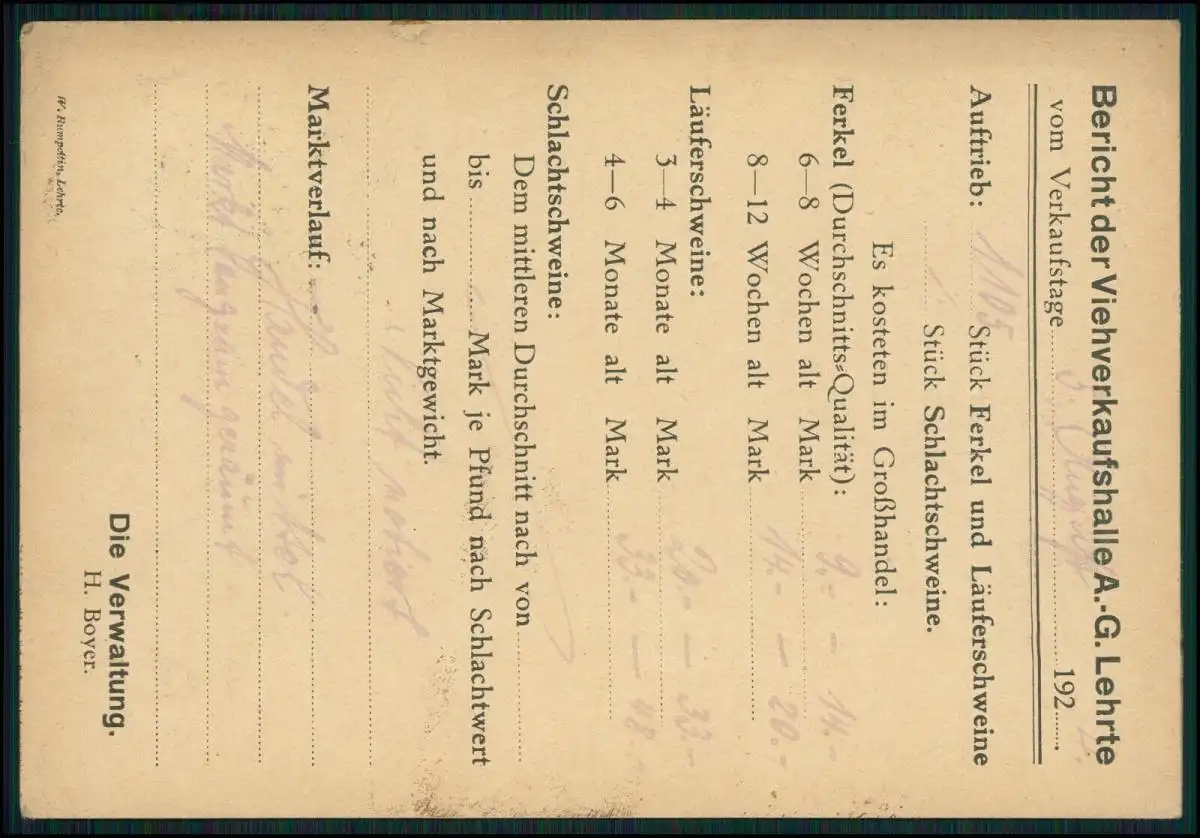 Bericht der Viehverkaufshalle A.-G. Lehrte
vom Verkaufstage 3. August 192
Auftrieb: 1105 Stück Ferkel und Läuferschweine
Stück Schlachtschweine.
Es kosteten im Großhandel:
Ferkel (Durchschnitts-Qualität):
6—8 Wochen alt Mark 9.- — 14.-
8—12 Wochen alt Mark 14.- — 20.-
Läuferschweine:
3—4 Monate alt Mark 20.- — 33.-
4—6 Monate alt Mark 33.- — 48.-
Schlachtschweine:
Dem mittleren Durchschnitt nach von
bis Mark je Pfund nach Schlachtwert
und nach Marktgewicht.
nicht notiert
Marktverlauf:
Handel mittel.
Markt langsam geräumt
Die Verwaltung.
H. Boyer.
W. Rumpeltin, Lehrte.